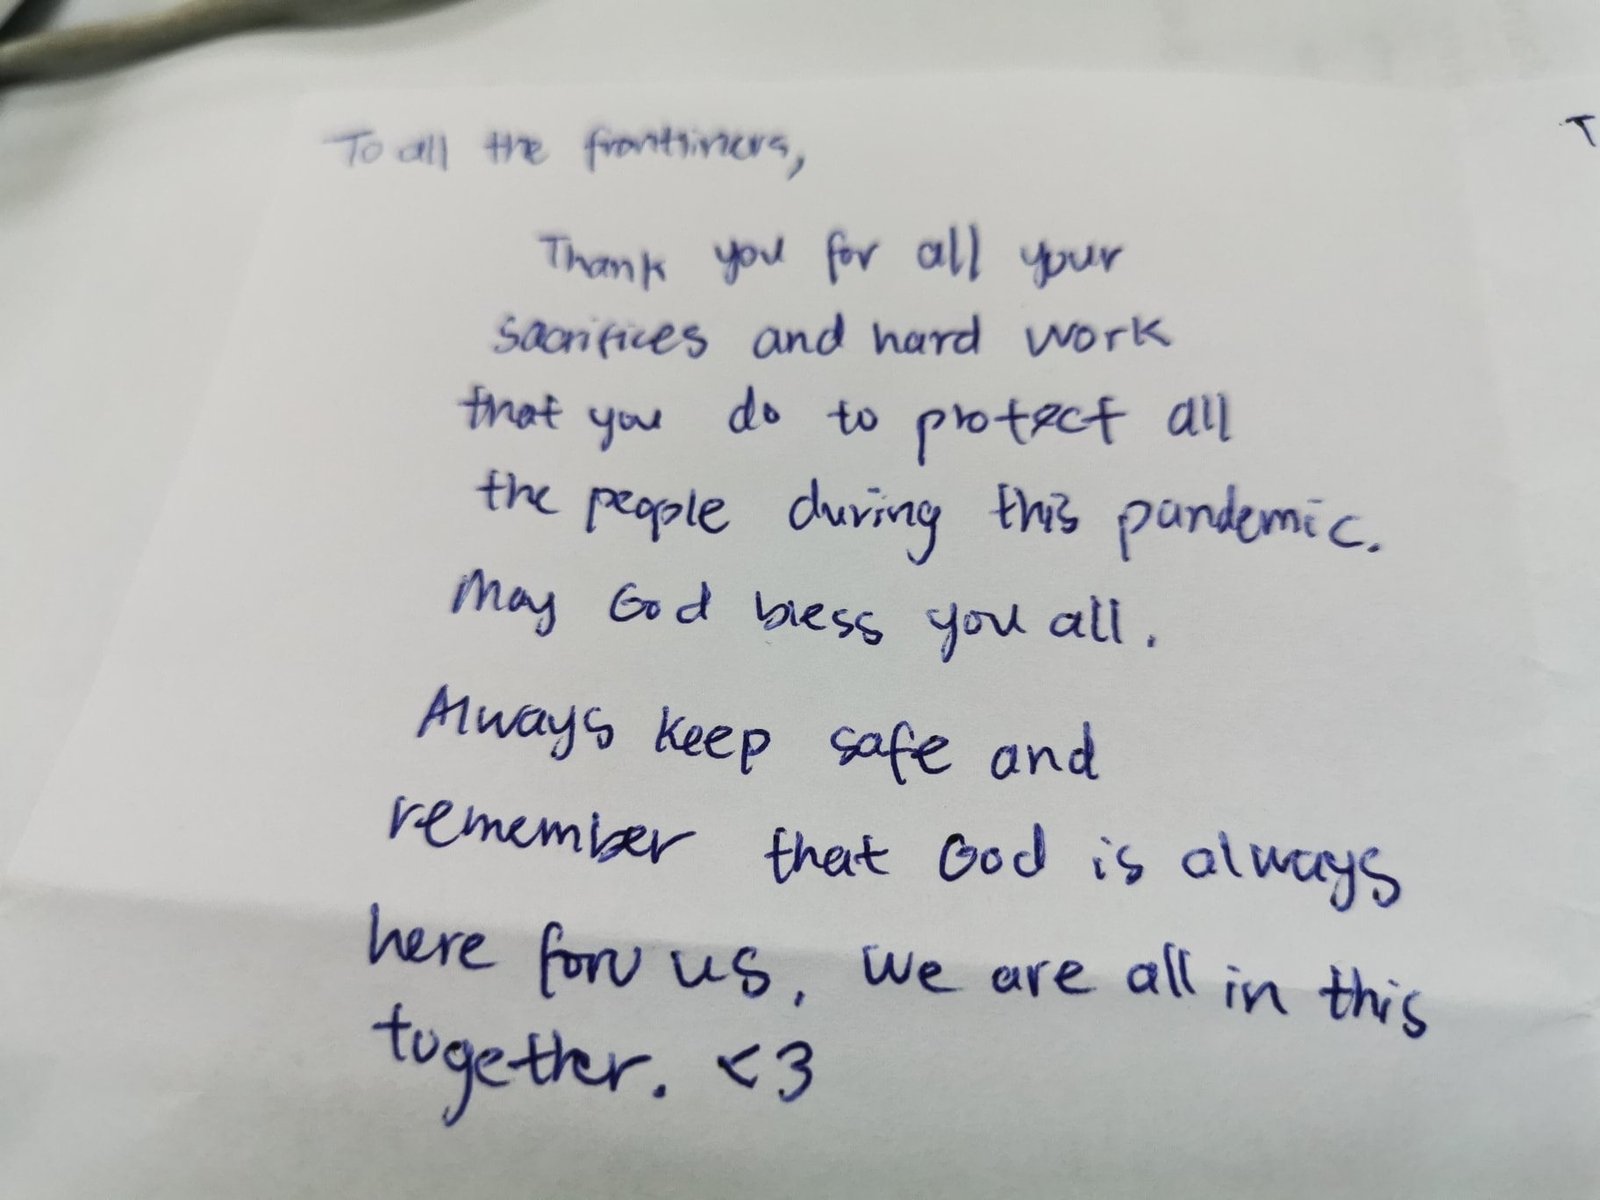 To all the frontliners,
Thank you for all your
sacrifices and hard work
that you do to protect all
the people during this pandemic.
May God bless you all.
Always keep safe and
remember that God is always
here for us. We are all in this
together. <3
T